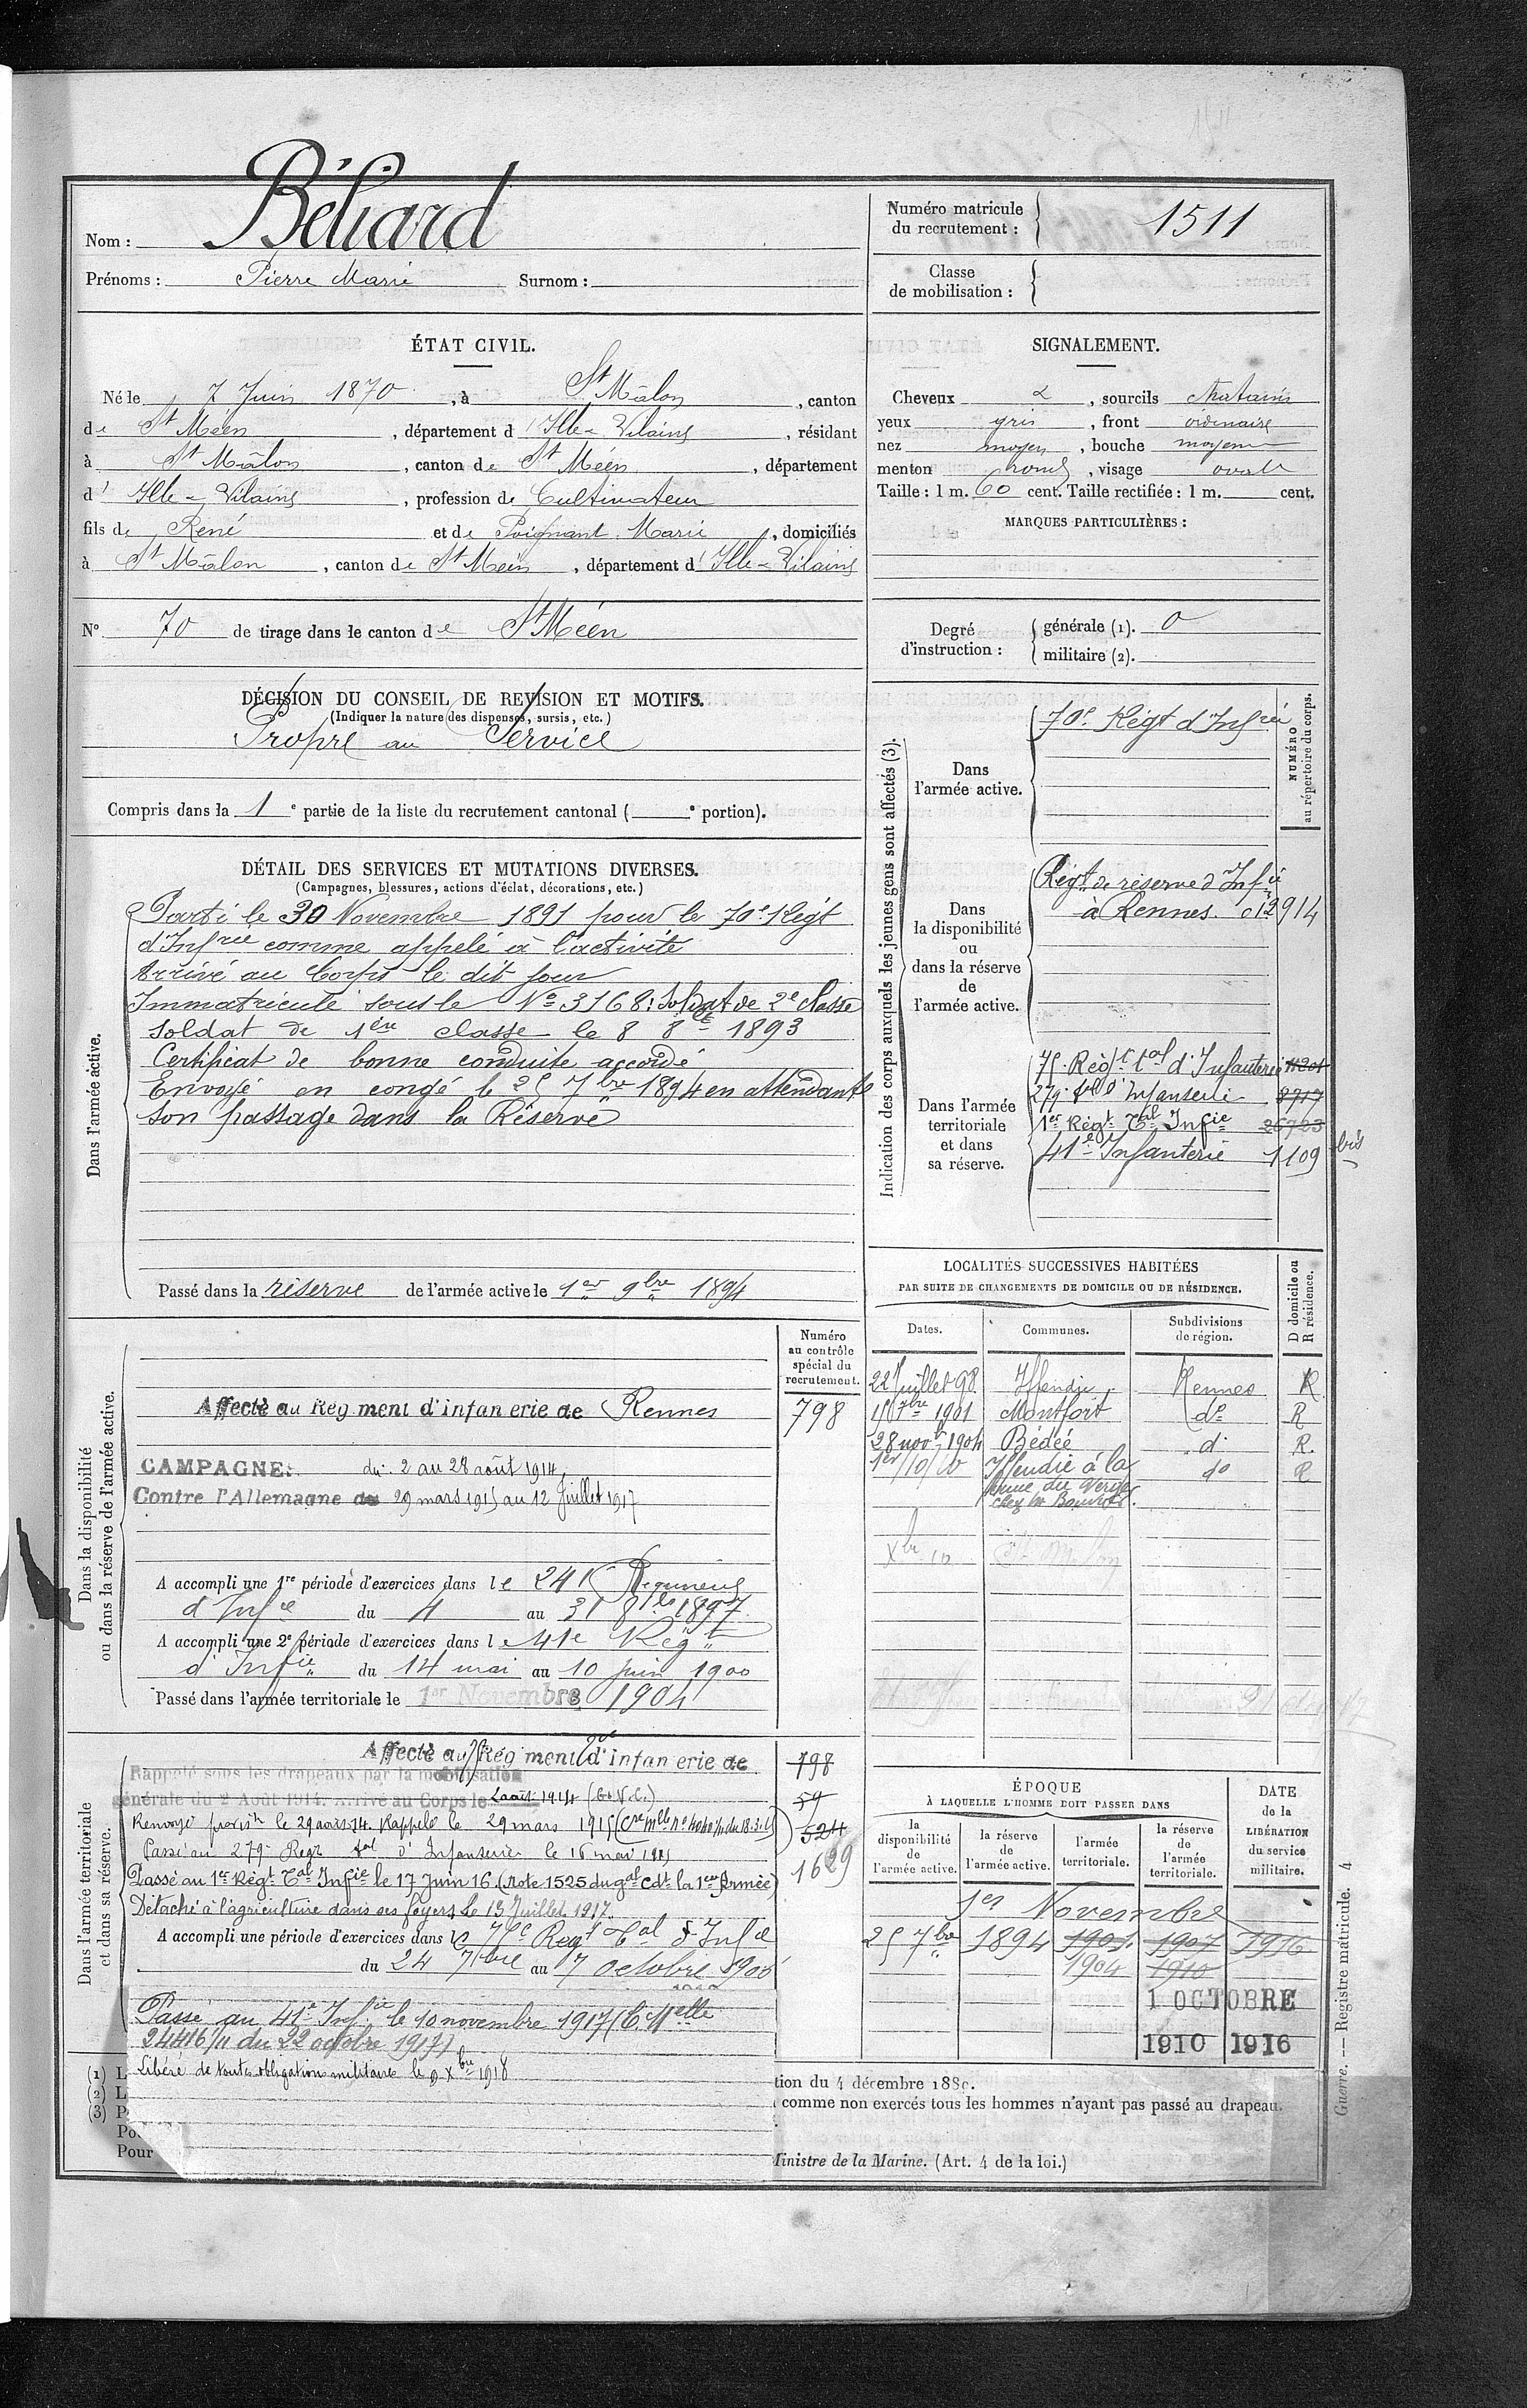 Nom : Béliard
Prénoms : Pierre Marie Surnom :
Numéro matricule du recrutement : 1511
Classe de mobilisation :
ÉTAT CIVIL.
Né le 7 Juin 1870, à St Mâlon, canton
de St Méen, département d'Ille-Vilaine, résidant
à St Mâlon, canton de St Méen, département
d' Ille-Vilaine, profession de Cultivateur
fils de René et de Poignant Marie, domiciliés
à St Mâlon, canton de St Méen, département d'Ille-Vilaine
SIGNALEMENT.
Cheveux &, sourcils chatains
yeux gris, front ordinaire
nez moyen, bouche moyenne
menton rond, visage ovale
Taille : 1 m. 60 cent. Taille rectifiée : 1 m. cent.
MARQUES PARTICULIÈRES :
N° 70 de tirage dans le canton de St Méen
Degré d'instruction : générale (1). 0
militaire (2).
DÉCISION DU CONSEIL DE REVISION ET MOTIFS.
(Indiquer la nature des dispenses, sursis, etc.)
Propre au Service
Compris dans la 1e partie de la liste du recrutement cantonal ( e portion).
DÉTAIL DES SERVICES ET MUTATIONS DIVERSES.
(Campagnes, blessures, actions d'éclat, décorations, etc.)
Dans l'armée active.
Parti le 30 Novembre 1891 pour le 70e Régt
d'Infrie comme appelé à l'activité
Arrivé au Corps le dit jour
Immatriculé sous le No 3168 : Soldat de 2e classe
Soldat de 1ère classe le 8 8bre 1893
Certificat de bonne conduite accordé
Envoyé en congé le 25 7bre 1894 en attendant
son passage dans la Réserve
Passé dans la réserve de l'armée active le 1er 9bre 1894
Indication des corps auxquels les jeunes gens sont affectés (3).
NUMÉRO au répertoire du corps.
Dans l'armée active.
70e Régt d'Infrie
Dans la disponibilité ou dans la réserve de l'armée active.
Régt de réserve d'Infie
à Rennes. 12914
Dans l'armée territoriale et dans sa réserve.
75e Régt tal d'Infanterie 11201
279e tal d'Infanterie 8717
1er Régt Tal Infie 26723
41e Infanterie 1109 bis
LOCALITÉS SUCCESSIVES HABITÉES
PAR SUITE DE CHANGEMENTS DE DOMICILE OU DE RÉSIDENCE.
Dates. Communes. Subdivisions de région. D domicile ou R résidence.
22 Juillet 98 Iffendic Rennes R
15 7bre 1901 Montfort do R
28 novb 1904 Bédée d° R.
1er/10/10 Iffendic à la do R
chez Mr
Xbr 10 St Malon
Dans la disponibilité ou dans la réserve de l'armée active.
Numéro au contrôle spécial du recrutement.
Affecté au Régiment d'infanterie de Rennes 798
CAMPAGNE: du 2 au 28 août 1914,
Contre l'Allemagne du 29 mars 1915 au 12 Juillet 1917
A accompli une 1re période d'exercices dans le 241e Régiment
d'Infie du 4 au 31 8bre 1897
A accompli une 2e période d'exercices dans le 41e Régt
d'Infie du 14 mai au 10 juin 1900
Passé dans l'armée territoriale le 1er Novembre 1904
Dans l'armée territoriale et dans sa réserve.
Affecté au 75e Régiment tal d'infanterie de 798
Rappelé sous les drapeaux par la mobilisation
générale du 2 Août 1914. Arrivé au Corps le 2 août 1914 (G.V.C.) 59
Renvoyé provisrt le 29 août 14. Rappelé le 29 mars 1915 524
Passé au 279e Régt tal d'Infanterie le 16 mai 1915 1629
Passé au 1er Régt Tal Infie le 17 Juin 16 (Note 1525 du gal Cdt la 1ère Armée)
Détaché à l'agriculture dans ses foyers le 13 Juillet 1917
A accompli une période d'exercices dans le 75e Régt Tal d'Infie
du 24 7bre au 7 octobre 1906
Passé au 41e Infie le 10 novembre 1917 (C. Melle
24416/11 du 22 octobre 1917)
Libéré de toute obligation militaire le Xbre 1918
ÉPOQUE
À LAQUELLE L'HOMME DOIT PASSER DANS
la disponibilité de l'armée active. la réserve de l'armée active. l'armée territoriale. la réserve de l'armée territoriale. DATE de la LIBÉRATION du service militaire.
1er Novembre
25 7bre 1894 1901 1907 1916
1904 1910
1 OCTOBRE
1910 1916
(1) L
(2) L
(3) P
Pour
tion du 4 décembre 1889.
comme non exercés tous les hommes n'ayant pas passé au drapeau.
Ministre de la Marine. (Art. 4 de la loi.)
Guerre. — Registre matricule. 4